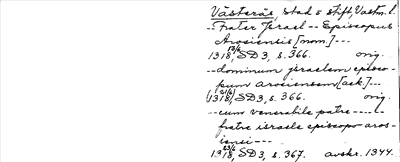 Västerås, stad o stift, Vastm. l.
--Frater Jsrael -- Episcopus
Arosiensis [nom.] ---
1318 13/6, SD 3, s. 366. orig.
--dominum jsraelem episco-
pum arosiensem [ack.] ---
(1318 21/6, SD 3, s. 366. orig.
--cum venerabile patre ----
fratre israele episcopo aros-
iensi ---
1318 23/6, SD 3, s. 367. avskr. 1344.